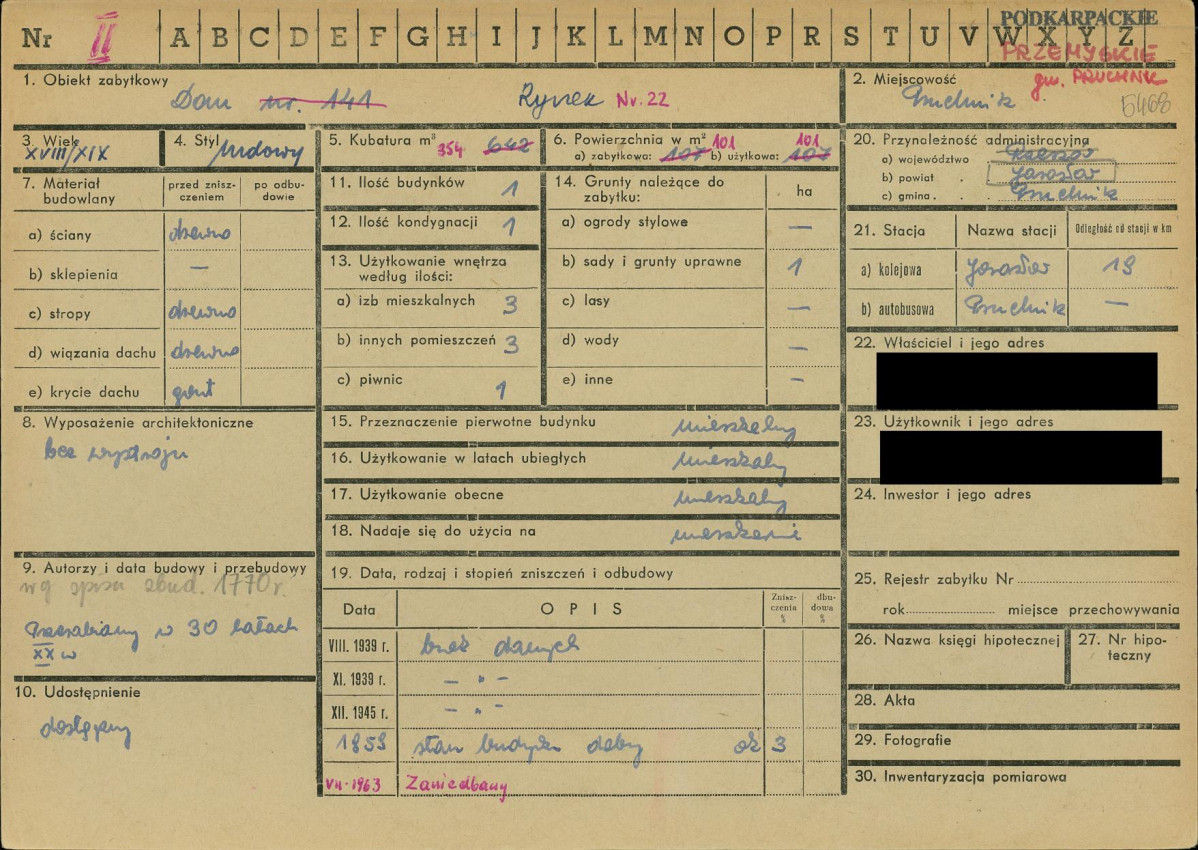 PODKARPACKIE
Nr II A B C D E F G H I J K L M N O P R S T U V W X Y Z
PRZEMYSKIE
gm. PRUCHNIK
1. Obiekt zabytkowy
Dom nr. 141 Rynek Nr. 22
2. Miejscowość
Pruchnik
5468
3. Wiek
XVIII/XIX
4. Styl
ludowy
5. Kubatura m³
354 642
6. Powierzchnia w m² 101 101
a) zabytkowa: 107 b) użytkowa: 107
20. Przynależność administracyjna
a) województwo Rzeszów
b) powiat Jarosław
c) gmina Pruchnik
7. Materiał budowlany
przed znisz-
czeniem
po odbu-
dowie
a) ściany drewno
b) sklepienia —
c) stropy drewno
d) wiązania dachu drewno
e) krycie dachu gont
11. Ilość budynków 1
12. Ilość kondygnacji 1
13. Użytkowanie wnętrza
według ilości:
a) izb mieszkalnych 3
b) innych pomieszczeń 3
c) piwnic 1
14. Grunty należące do
zabytku:
ha
a) ogrody stylowe —
b) sady i grunty uprawne 1
c) lasy —
d) wody —
e) inne —
21. Stacja Nazwa stacji Odległość od stacji w km
a) kolejowa Jarosław 19
b) autobusowa Pruchnik —
22. Właściciel i jego adres
23. Użytkownik i jego adres
24. Inwestor i jego adres
8. Wyposażenie architektoniczne
bez wystroju
15. Przeznaczenie pierwotne budynku mieszkalny
16. Użytkowanie w latach ubiegłych mieszkalny
17. Użytkowanie obecne mieszkalny
18. Nadaje się do użycia na mieszkanie
9. Autorzy i data budowy i przebudowy
wg spisu zbud. 1770 r.
Przerabiany w 30 latach
XX w
10. Udostępnienie
dostępny
19. Data, rodzaj i stopień zniszczeń i odbudowy
Data OPIS
Znisz-
czenia
%
dbu-
dowa
%
VIII. 1939 r. brak danych
XI. 1939 r. — „ —
XII. 1945 r. — „ —
1959 stan budynku dobry ok 3
VII-1963 Zaniedbany
25. Rejestr zabytku Nr
rok miejsce przechowywania
26. Nazwa księgi hipotecznej
27. Nr hipo-
teczny
28. Akta
29. Fotografie
30. Inwentaryzacja pomiarowa